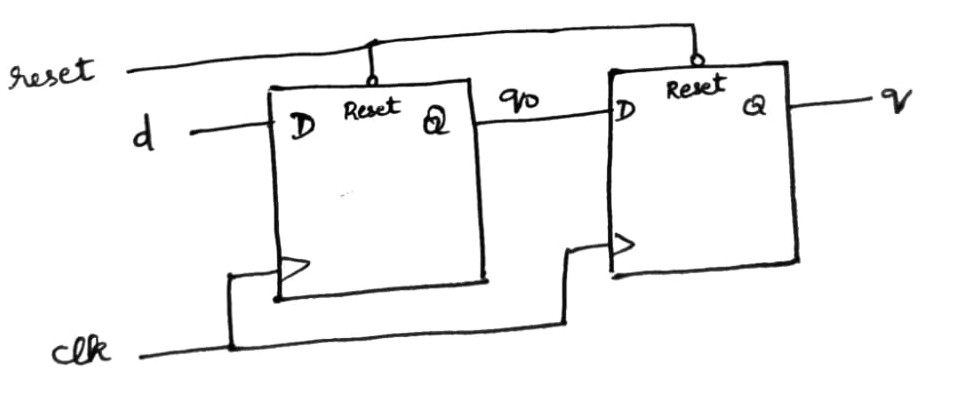 reset
d
D
Reset
Q
q0
D
Reset
Q
q
clk